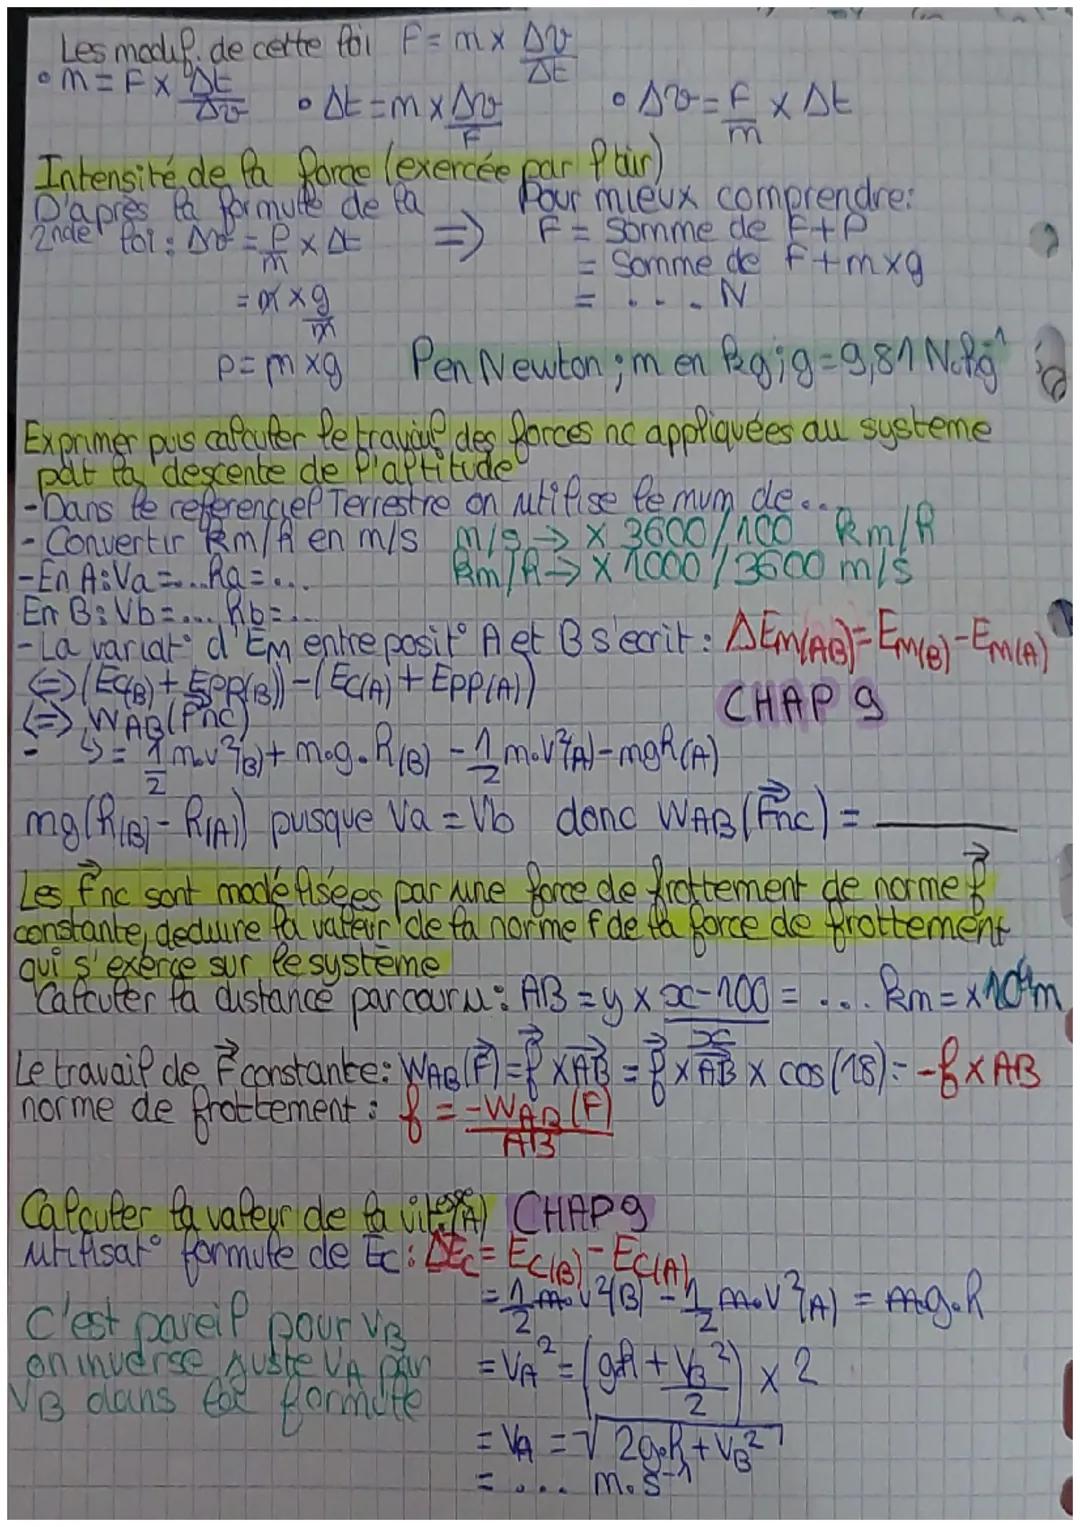 Les modif. de cette loi F = m x Δv/Δt
• m = F x Δt/Δv • Δt = m x Δv/F • Δv = F/m x Δt
Intensité de la force (exercée par l'air)
D'après la formule de la Pour mieux comprendre:
2nde loi : Δv = P/m x Δt => F = Somme de F+P
= Somme de F+mxg
= m x g/m = ... N
P = m x g P en Newton ; m en kg ; g = 9,81 N.kg⁻¹
Exprimer puis calculer le travail des forces nc appliquées au systeme
pdt la descente de l'altitude
- Dans le referenciel Terrestre on utilise le mvm de...
- Convertir km/h en m/s m/s → x 3600/100 km/h
- En A : Va = ... ha = ... km/h → x 1000/3600 m/s
En B : Vb = ... hb = ...
- La variat° d'Em entre posit° A et B s'ecrit : ΔEm(AB) = Em(B) - Em(A)
<=> (Ec(B) + Epp(B)) - (Ec(A) + Epp(A))
<=> WAB(Fnc) CHAP 9
- ↳ = 1/2 m.v²(B) + m.g.h(B) - 1/2 m.v²(A) - mgh(A)
mg(h(B) - h(A)) pusque Va = Vb donc WAB(F⃗nc) = ____
Les F⃗nc sont modélisées par une force de frottement de norme f⃗
constante, deduire la valeur de la norme f de la force de frottement
qui s'exerce sur le système
Calculer la distance parcouru : AB = y x x-100/x = ... km = x10⁴m
Le travail de F⃗ constante : WAB(F⃗) = f⃗ x AB⃗ = f⃗ x AB⃗ x cos(18) = -f x AB
norme de frottement : f = -WAB(F)/AB
Calculer la valeur de la vitesse(A) CHAP 9
utilisat° formule de Ec : ΔEc = Ec(B) - Ec(A)
= 1/2 m.v²(B) - 1/2 m.v²(A) = mg.h
C'est pareil pour VB
on inverse juste VA par = VA² = (gh + VB²/2) x 2
VB dans la formule
= VA = √2g.h + VB²
= ... m.s⁻¹